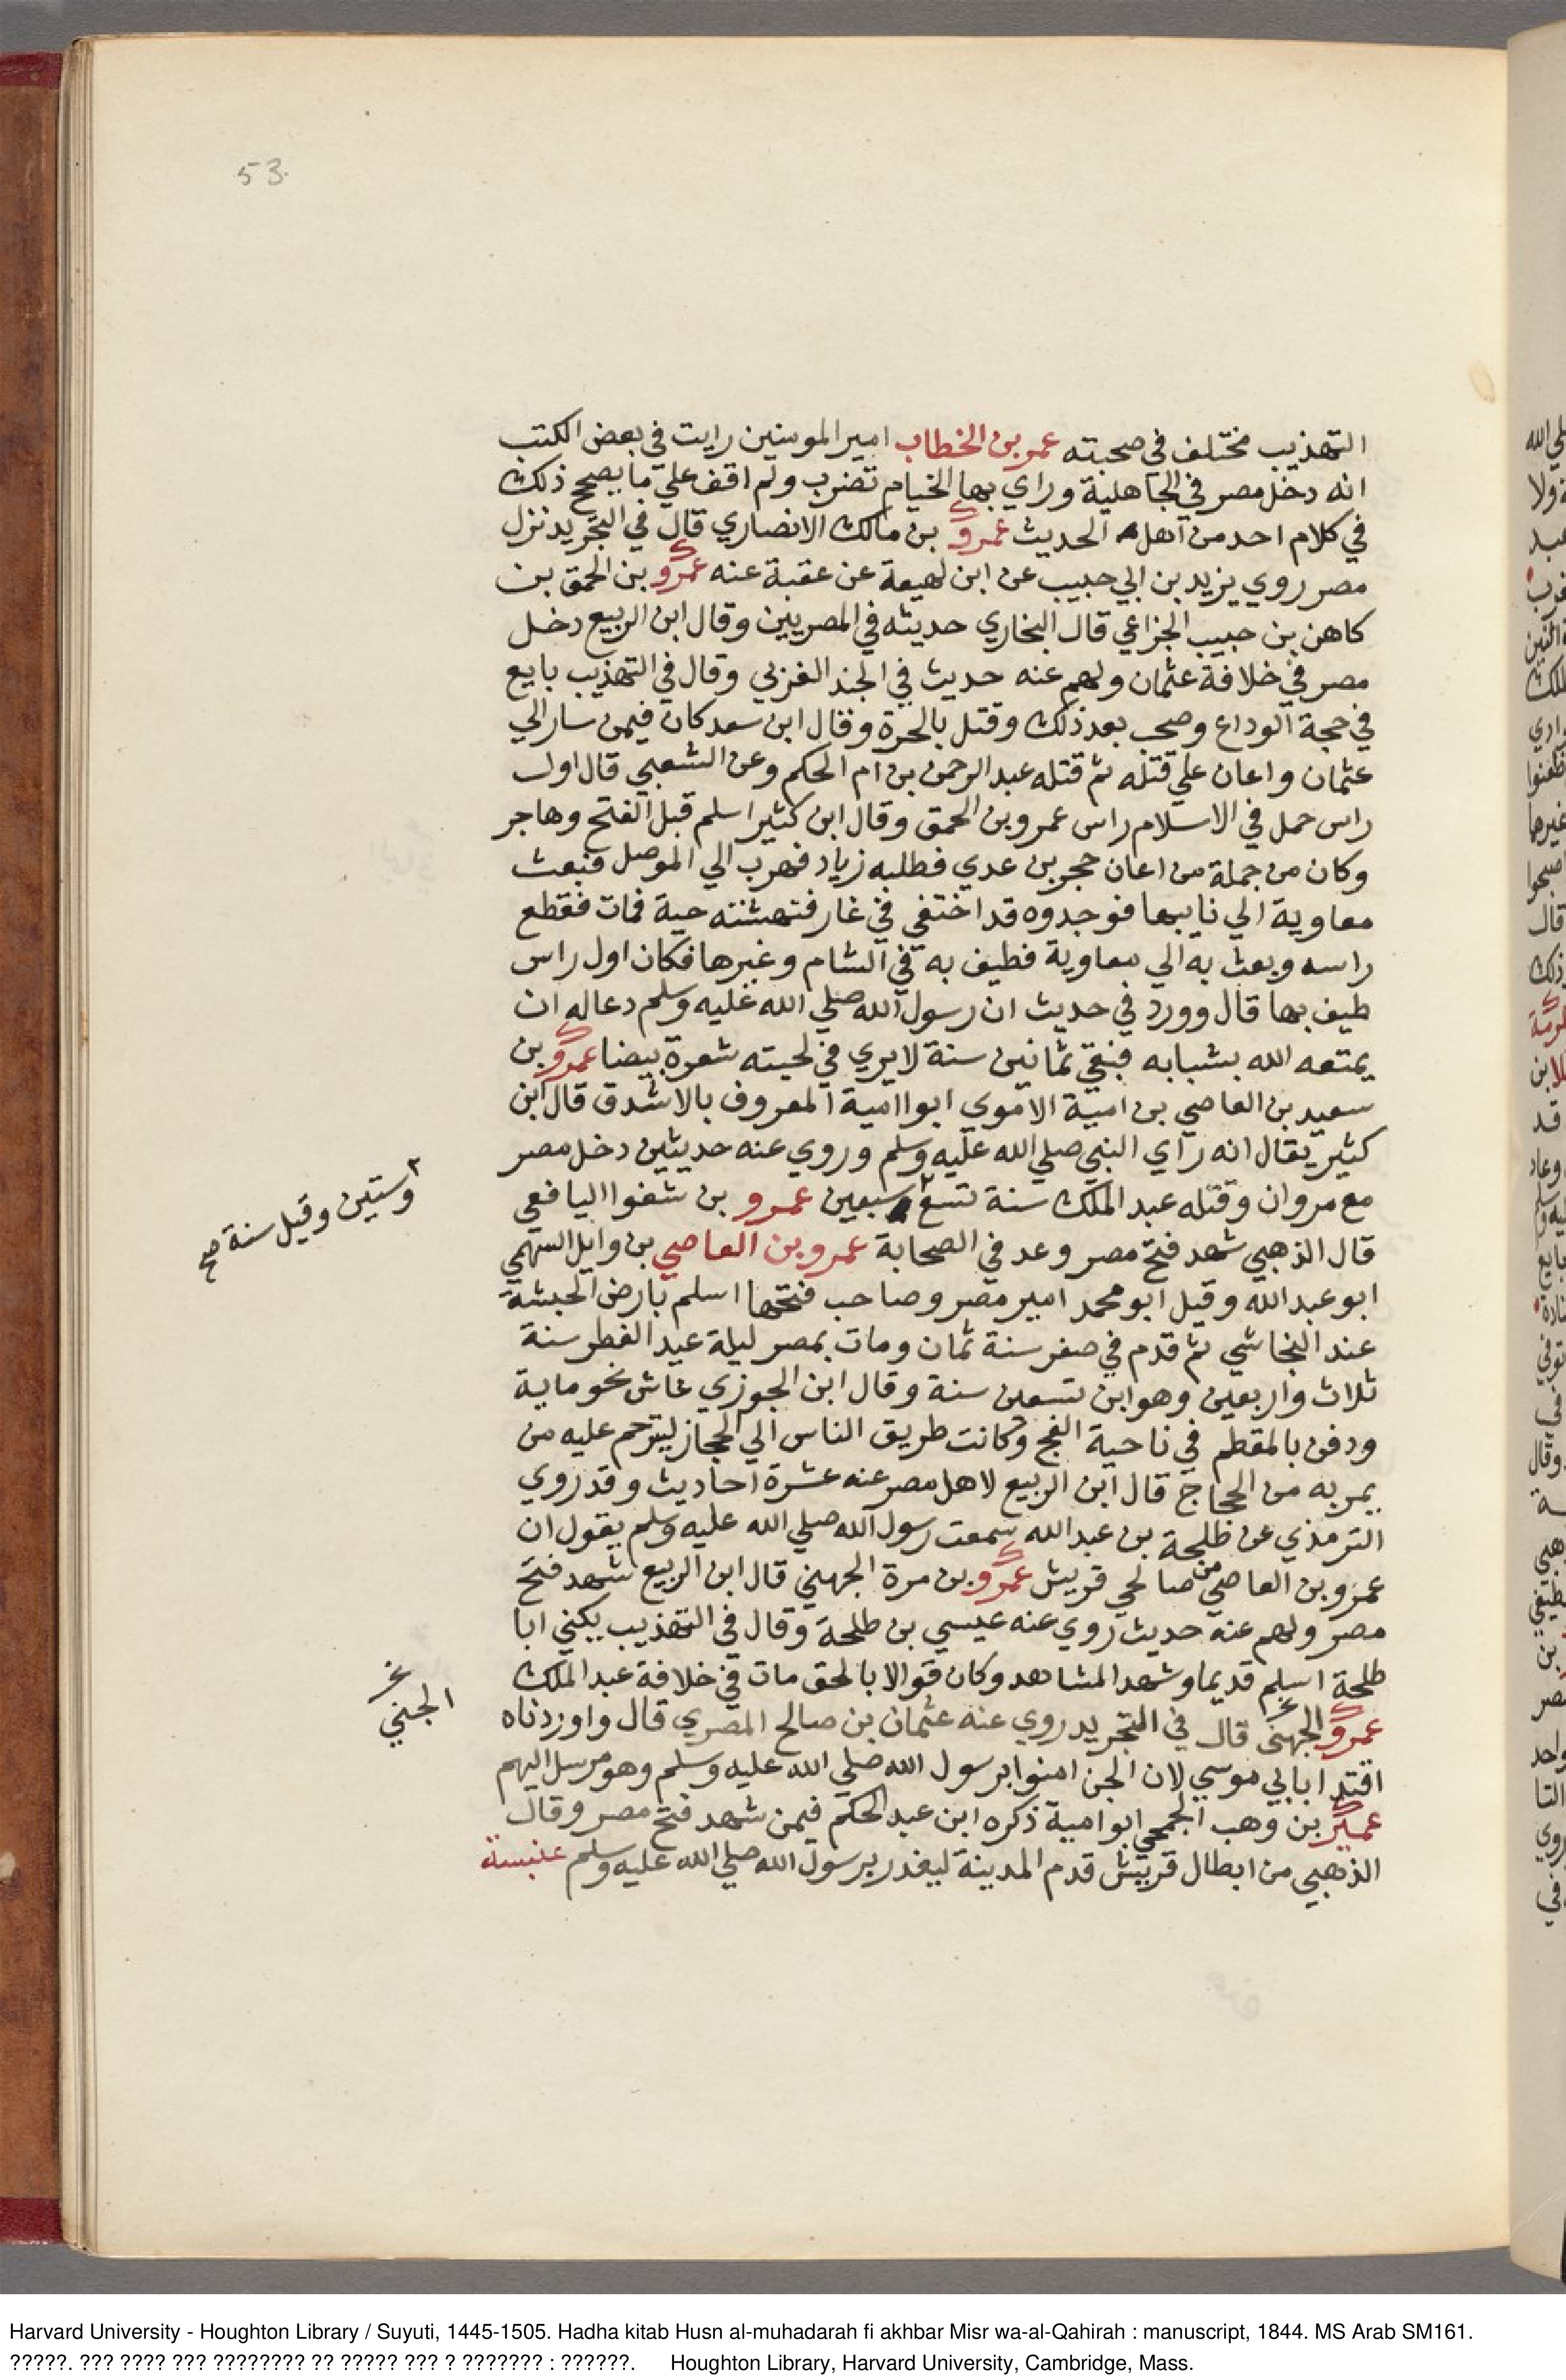 53
التهذيب مختلف في صحبته عمر بن الخطاب امير المومنين رايت في بعض الكتب
انه دخل مصر في الجاهلية وراي بها الخيام تضرب ولم اقف علي ما يصحح ذلك
في كلام احد من اهل الحديث عمرو بن مالك الانصاري قال في التجريد نزل
مصر روي يزيد بن ابي حبيب عن ابن لهيعة عن عقبة عنه عمرو بن الحمق بن
كاهن بن حبيب الخزاعي قال البخاري حديثه في المصريين وقال ابن الربيع دخل
مصر في خلافة عثمان ولهم عنه حديث في الجند الغربي وقال في التهذيب بايع
في حجة الوداع وصحب بعد ذلك وقتل بالحرة وقال ابن سعد كان فيمن سار الي
عثمان واعان علي قتله ثم قتله عبد الرحمن بن ام الحكم وعن الشعبي قال اول
راس حمل في الاسلام راس عمرو بن الحمق وقال ابن كثير اسلم قبل الفتح وهاجر
وكان من جملة من اعان حجر بن عدي فطلبه زياد فهرب الي الموصل فبعث
معاوية الي نايبها فوجدوه قد اختفي في غار فنهشته حية فمات فقطع
راسه وبعث به الي معاوية فطيف به في الشام وغيرها فكان اول راس
طيف بها قال وورد في حديث ان رسول الله صلي الله عليه وسلم دعا له ان
يمتعه الله بشبابه فبقي ثمانين سنة لا يري في لحيته شعرة بيضا عمرو بن
سعيد بن العاصي بن امية الاموي ابوا امية المعروف بالاشدق قال ابن
كثير يقال انه راي النبي صلي الله عليه وسلم وروي عنه حديثين دخل مصر
مع مروان وقتله عبد الملك سنة تسع وسبعين عمرو بن شغوا اليافعي
وستين وقيل سنة صح
قال الذهبي شهد فتح مصر وعد في الصحابة عمرو بن العاصي بن وايل السهمي
ابو عبد الله وقيل ابو محمد امير مصر وصاحب فتحها اسلم بارض الحبشة
عند النجاشي ثم قدم في صفر سنة ثمان ومات بمصر ليلة عيد الفطر سنة
ثلاث واربعين وهو ابن تسعين سنة وقال ابن الجوزي عاش نحو ماية
ودفن بالمقطم في ناحية الفج وكانت طريق الناس الي الحجاز ليترحم عليه من
يمر به من الحجاج قال ابن الربيع لاهل مصر عنه عشرة احاديث وقد روي
الترمذي عن طلحة بن عبد الله سمعت رسول الله صلي الله عليه وسلم يقول ان
عمرو بن العاصي من صالحي قريش عمرو بن مرة الجهني قال ابن الربيع شهد فتح
مصر ولهم عنه حديث روي عنه عيسي بن طلحة وقال في التهذيب يكني ابا
طلحة اسلم قديما وشهد المشاهد وكان قوالا بالحق مات في خلافة عبد الملك
عمرو الجهني قال في التجريد روي عنه عثمان بن صالح المصري قال واوردناه
الجني
اقتدا بابي موسي لان الجن امنوا برسول الله صلي الله عليه وسلم وهو مرسل اليهم
عمير بن وهب الجمحي ابو امية ذكره ابن عبد الحكم فيمن شهد فتح مصر وقال
الذهبي من ابطال قريش قدم المدينة ليغدر برسول الله صلي الله عليه وسلم عنبسة
Harvard University - Houghton Library / Suyuti, 1445-1505. Hadha kitab Husn al-muhadarah fi akhbar Misr wa-al-Qahirah : manuscript, 1844. MS Arab SM161.
?????. ??? ???? ??? ???????? ?? ????? ??? ? ??????? : ??????. Houghton Library, Harvard University, Cambridge, Mass.